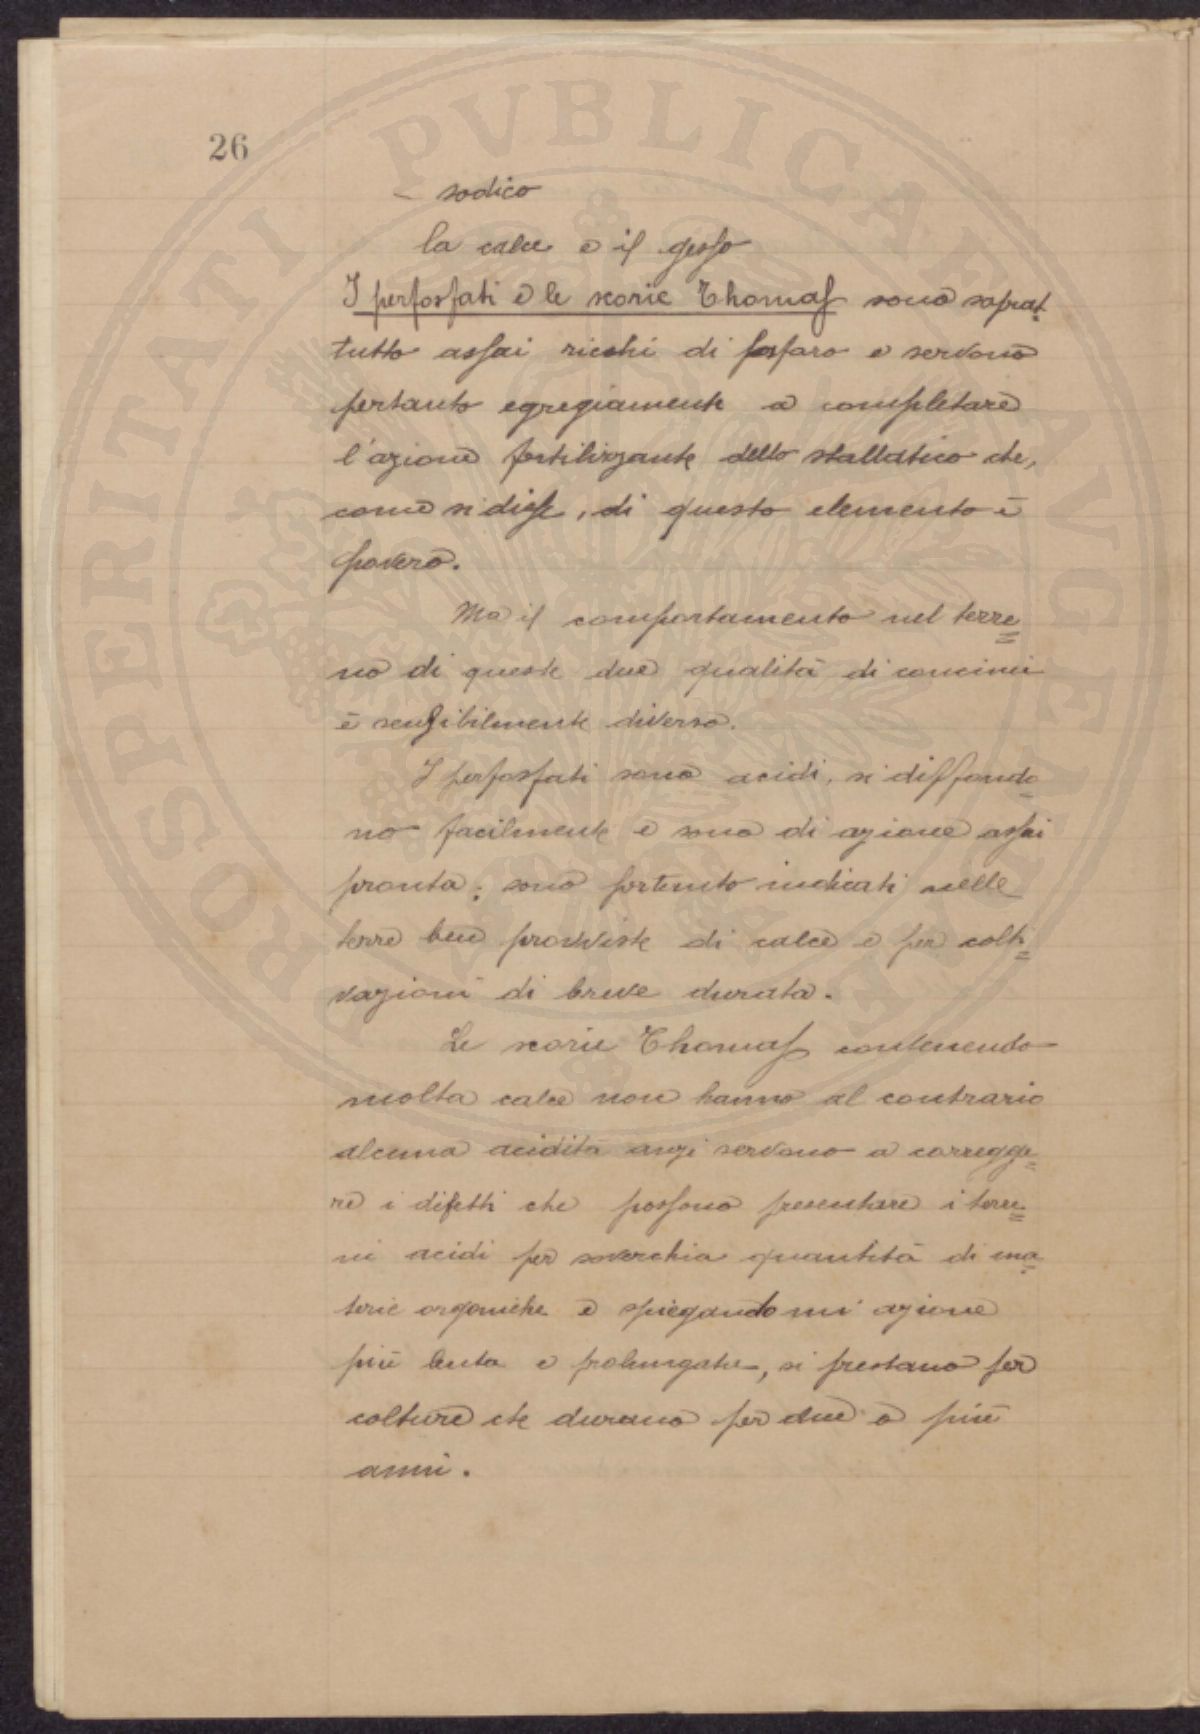 26
- sodico
la calce e il gesso
I perfosfati e le scorie Thomas sono soprat-
tutto assai ricchi di fosforo e servono
pertanto egregiamente a completare
l'azione fertilizzante dello stallatico che,
come si disse, di questo elemento è
povero.
Ma il comportamento nel terre=
no di queste due qualità di concimi
è sensibilmente diverso.
I perfosfati sono acidi, si diffondo-
no facilmente e sono di azione assai
pronta; sono pertanto indicati nelle
terre ben provviste di calce e per colti=
vazioni di breve durata.
Le scorie Thomas contenendo
molta calce non hanno al contrario
alcuna acidità anzi servono a corregge=
re i difetti che possono presentare i terre=
ni acidi per soverchia quantità di ma-
terie organiche e spiegando azione
più lenta e prolungata, si prestano per
colture che durano per due o più
anni.
PROSPERITATI PVBLICAE AVGENDAE